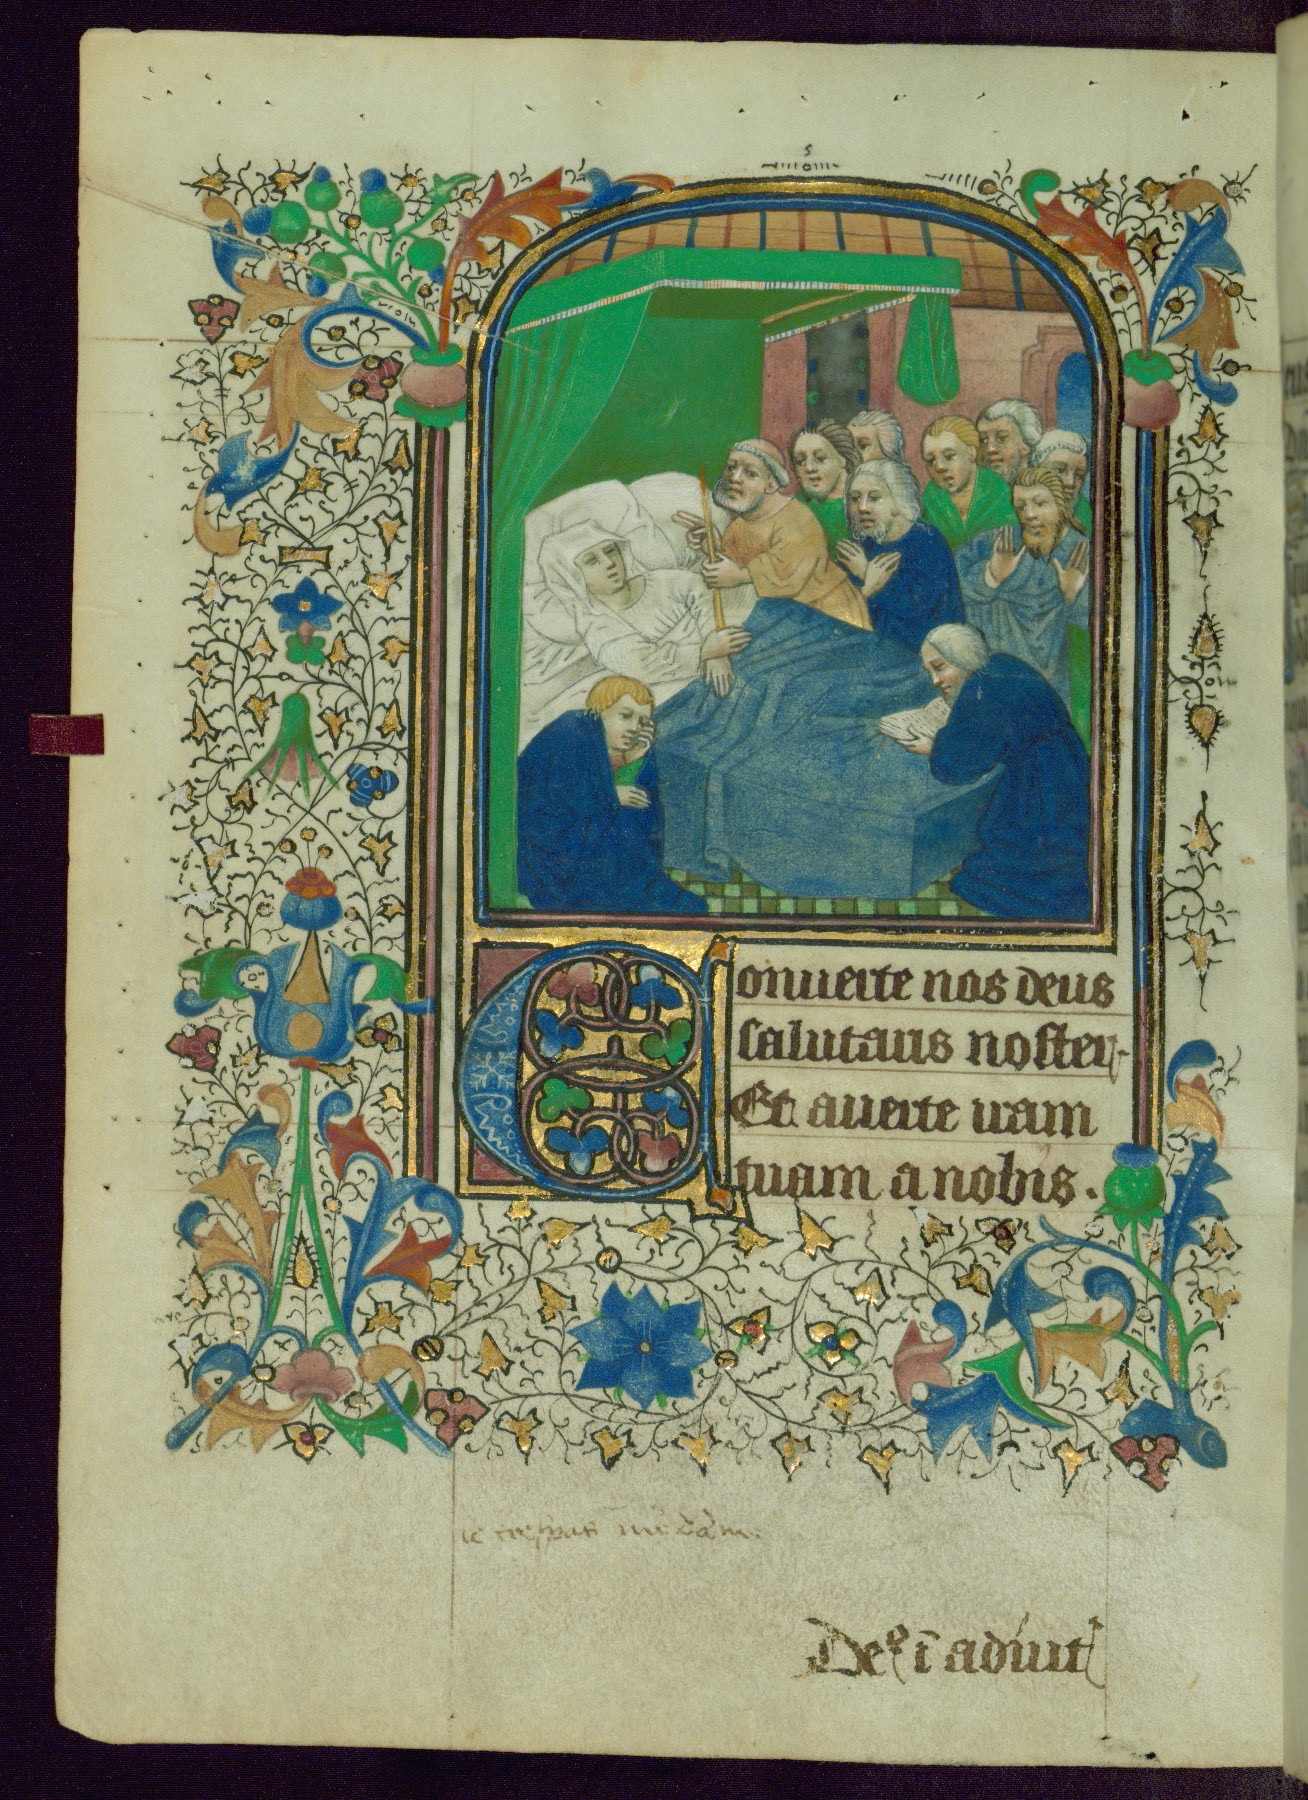 Conuerte nos deus
salutaris noster.
Et auerte iram
tuam a nobis.
le trespas nre dame
Deus i adiut